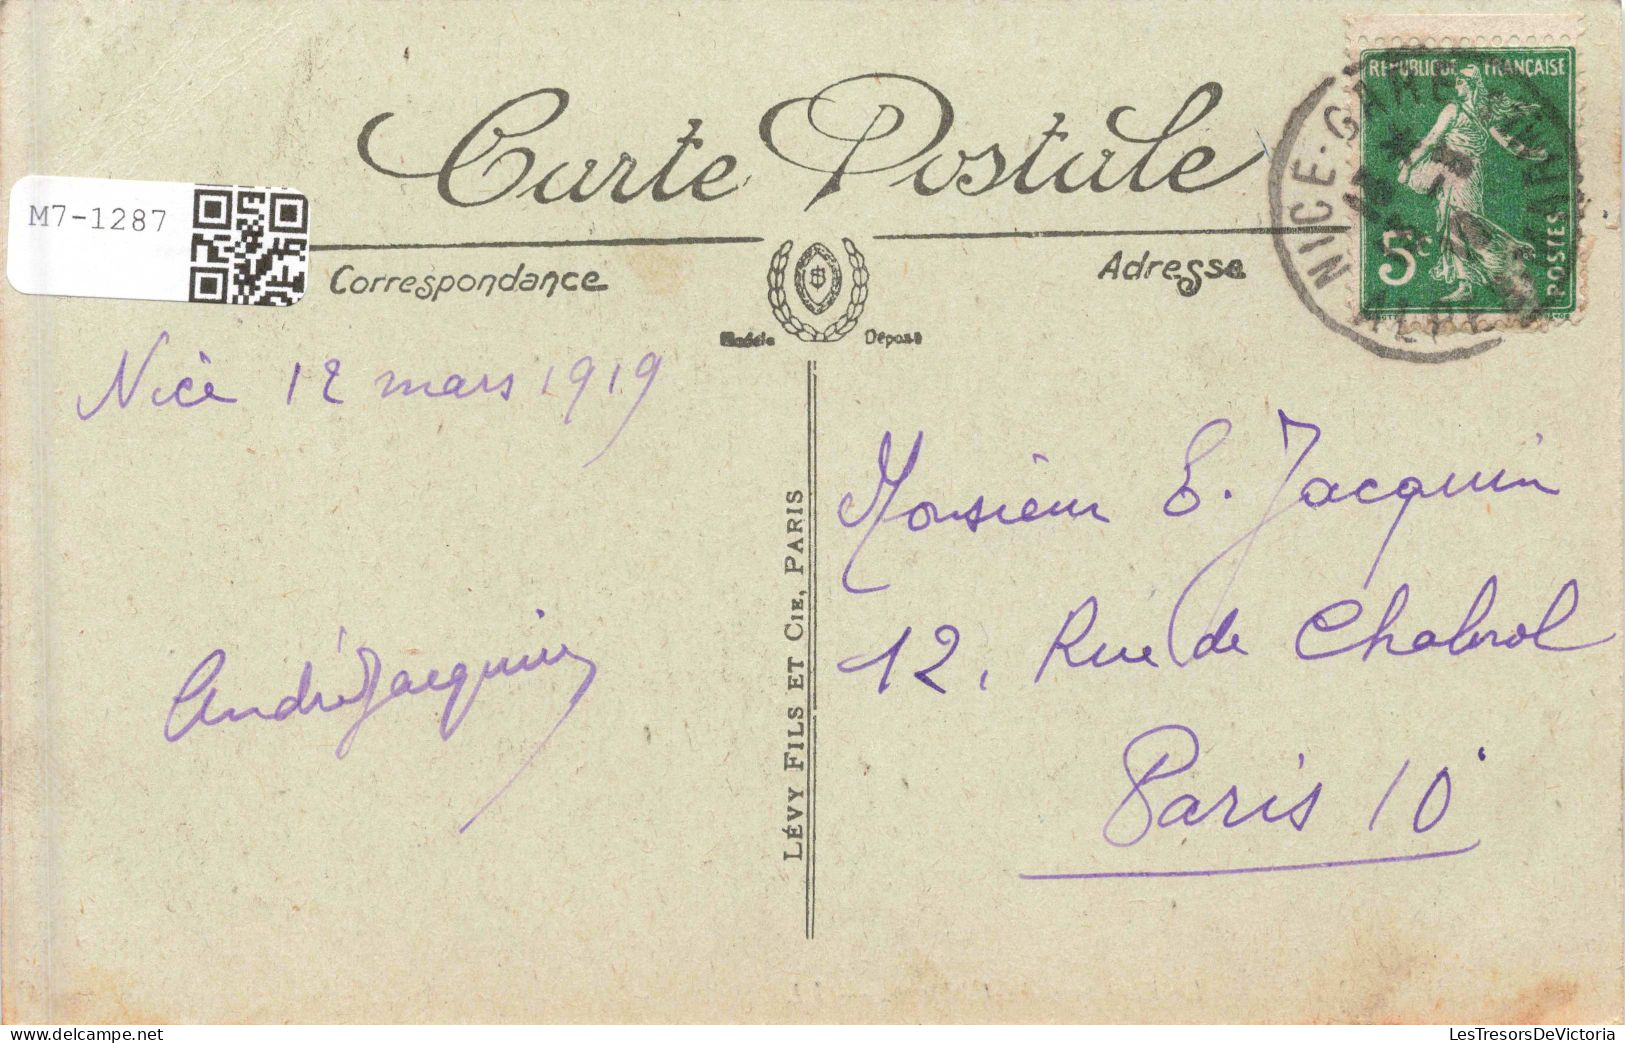 Carte Postale
M7-1287
Correspondance
Adresse
Modèle Déposé
RÉPUBLIQUE FRANÇAISE
5c
POSTES
NICE-GARE
Nice 12 mars 1919
André Jacquin
LÉVY FILS ET CIE, PARIS
Monsieur E. Jacquin
12, Rue de Chabrol
Paris 10e
LesTresorsDeVictoria